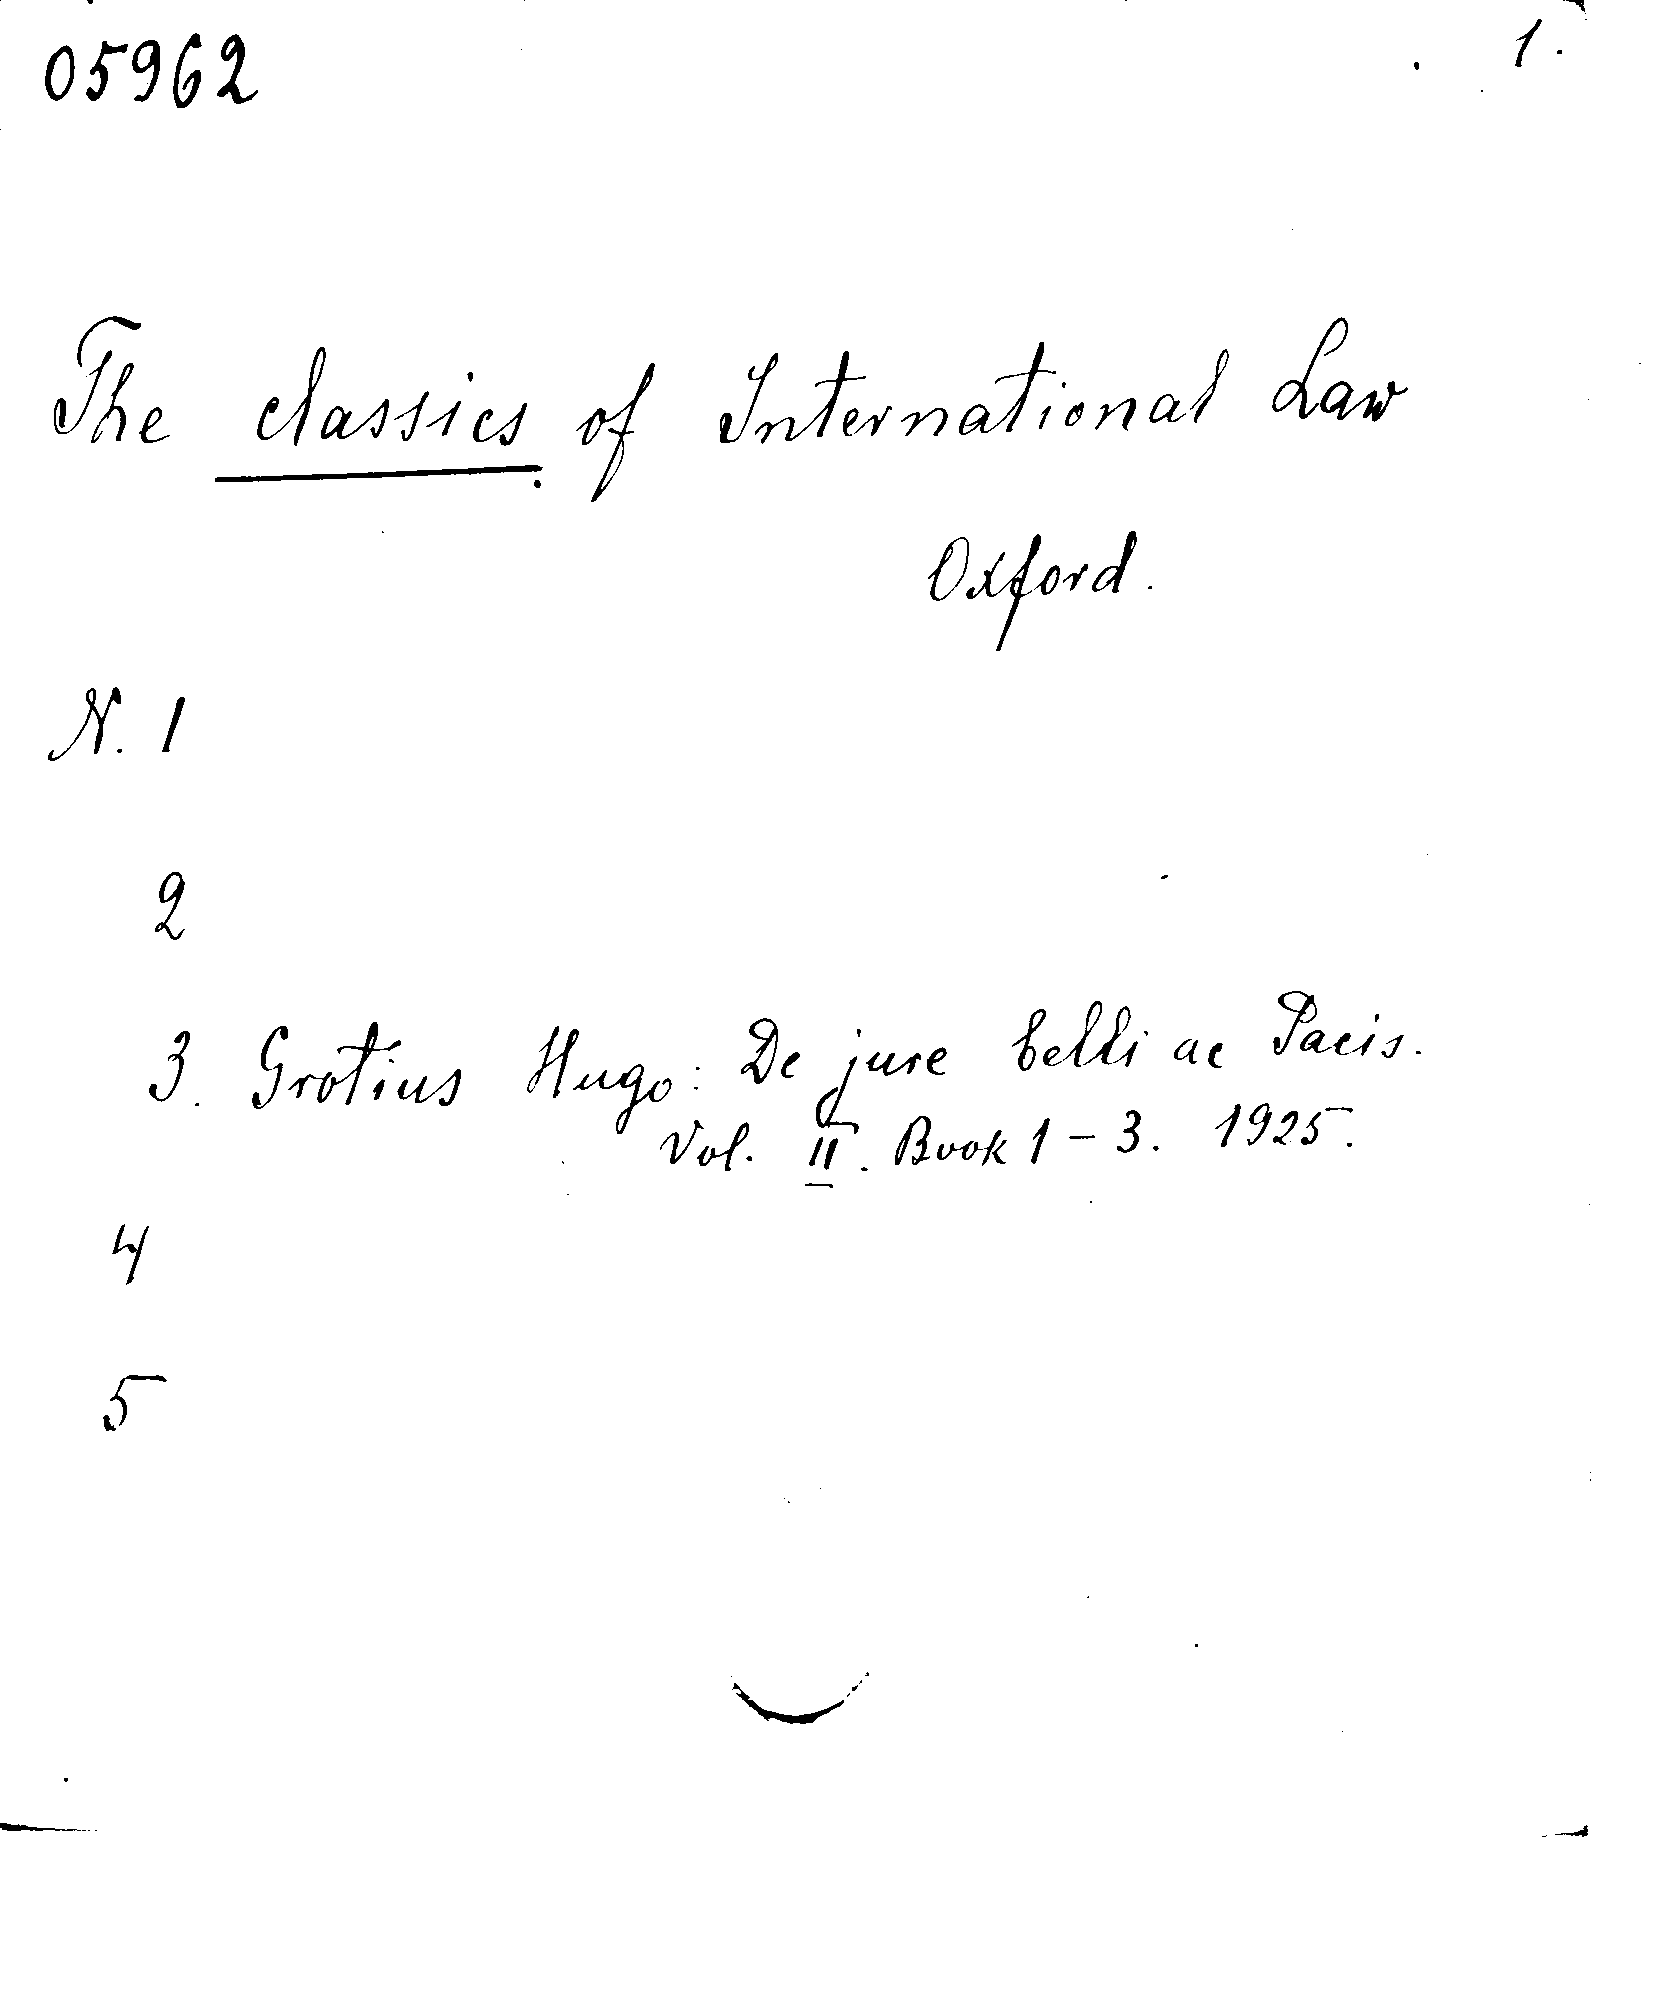 05962
1.
The classics of International Law
Oxford.
N. 1
2
3. Grotius Hugo: De jure belli ac Pacis.
Vol. II. Book 1-3. 1925.
4
5